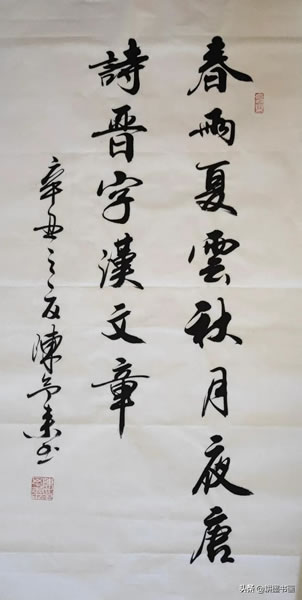 春雨夏雲秋月夜唐
詩晋字漢文章
辛丑之夏陳
头条@耕墨书画